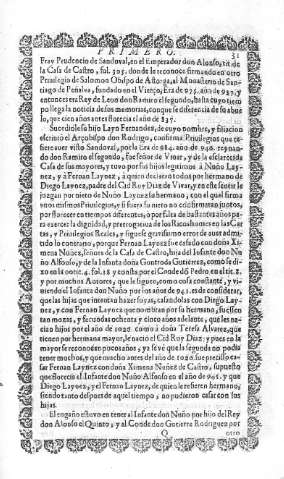 PRIMERO. 31
Fray Prudencio de Sandoval, en el Emperador don Alonso, tit. de
la Casa de Castro, fol. 305. donde le reconoce firmando en otro
Privilegio de Salomon Obispo de Astorga, al Monasterio de San-
tiago de Peñalva, fundado en el Vierço, Era de 975. año de 937. y
entonces era Rey de Leon don Ramiro el segundo, hasta cuyo tiem
po llega la noticia de sus memorias, conque se diferencia de su abue
lo, que cien años antes florecia el año de 837.
Sucediòle su hijo Layn Fernandez, de cuyo nombre, y filiacion
escriviò el Arçobispo don Rodrigo, confirma Privilegios que re-
fiere aver visto Sandoval, por la Era de 984. año de 946. reynan-
do don Ramiro el segundo, fue señor de Vivar, y de la esclarecida
Casa de sus mayores, y tuvo por sus hijos legitimos à Nuño Lay-
nez, y à Fernan Laynez, à quien declara todos por hermano de
Diego Laynez, padre del Cid Ruy Diaz de Vivar, y en este sentir le
juzgan por nieto de Nuño Laynez su hermano, con el qual firma
unos mismos Privilegios, y si fuera su nieto no confirmaran juntos,
por florecer en tiempos diferentes, o por falta de bastantes años pa-
ra exercer la dignidad, y prerrogativa de los Ricoshombres en las Car
tas, y Privilegios Reales, y siguese gravissimo error de aver admi-
tido lo contrario, porque Fernan Laynez fue casado con doña Xi
mena Nuñez, señora de la Casa de Castro, hija del Infante don Nu
ño Alfonso, y de la Infanta doña Gontroda Gutierrez, como se di-
xo en la nota 4. fol. 18 y consta por el Conde dõ Pedro en el tit. 2.
y por muchos Autores, que le siguen, como cosa constante, y vi-
viendo el Infante don Nuño por los años de 945. se ha de conside-
que las hijas que intentan hazer suyas, casandolas con Diego Lay
nez, y con Fernan Laynez que constituyan por su hermano, fuessen
tan moças, y fecundas ochenta y cinco años adelante, que les na-
cian hijos por el año de 1020 como à doña Teresa Alvarez, que
tienen por hermana mayor, le nació el Cid Ruy Diaz; y pues en la
mayor se reconoce poco año, ya se vè que la segunda no podia
tener muchos, y que mucho antes del año de 1020 fue preciso ca-
sar Fernan Laynez con doña Ximena Nuñez de Castro, supuesto
que florecia el Infante don Nuño Alfonso en el año de 945. y que
Diego Laynez, y el Fernan Laynez, de quien le refieren hermano,
siendo tanto despues de aquel tiempo, no pudieron casar con sus
hijas.
El engaño estuvo en tener al Infante don Nuño por hijo del Rey
don Alonso el Quinto, y al Conde don Gutierre Rodriguez por
Q